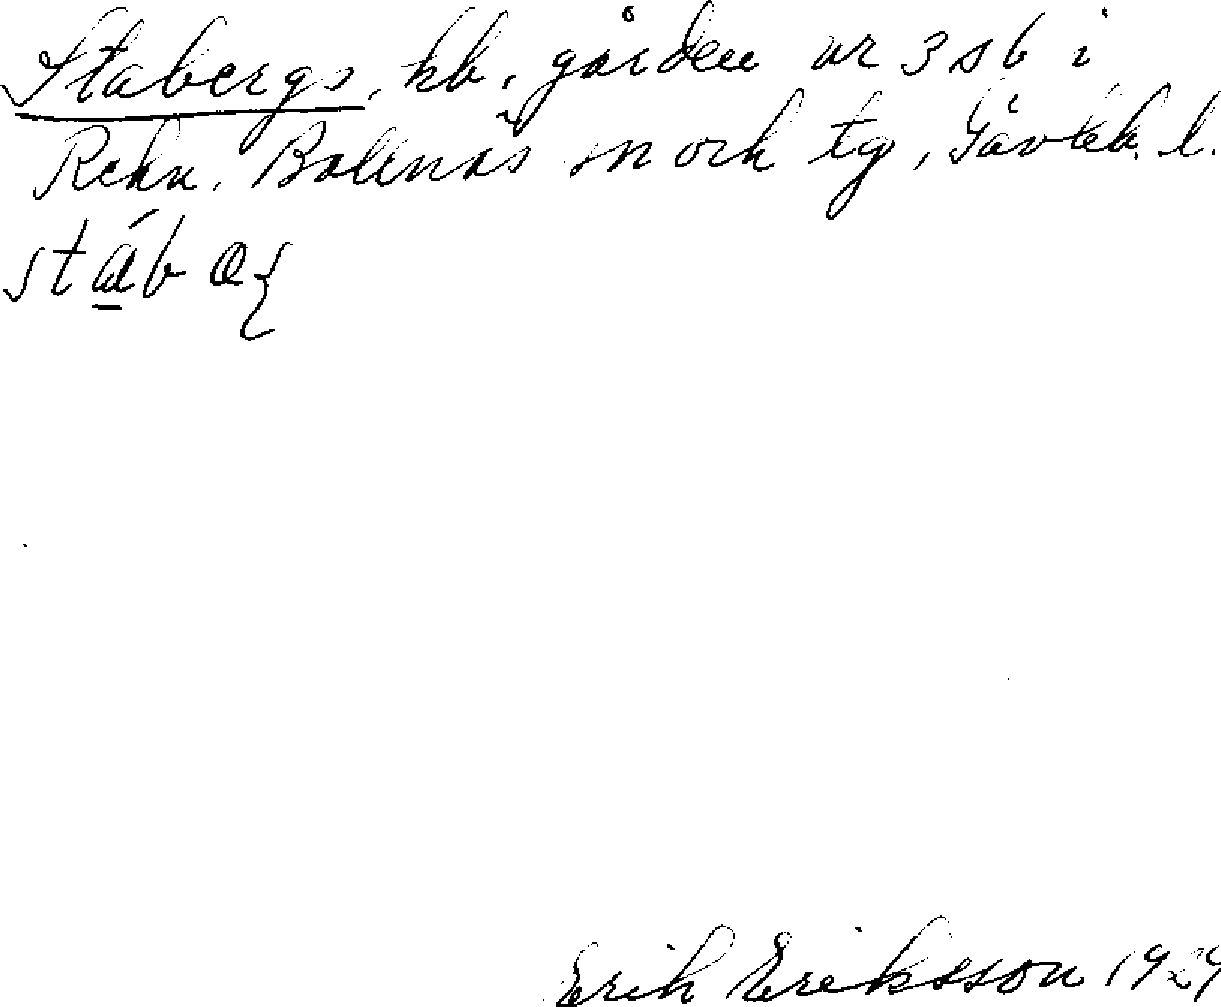 Stabergs, hb, gården nr 3 sb i
Rehn, Bollnäs sn och tg, Gävleb. l.
Erik Eriksson 1929